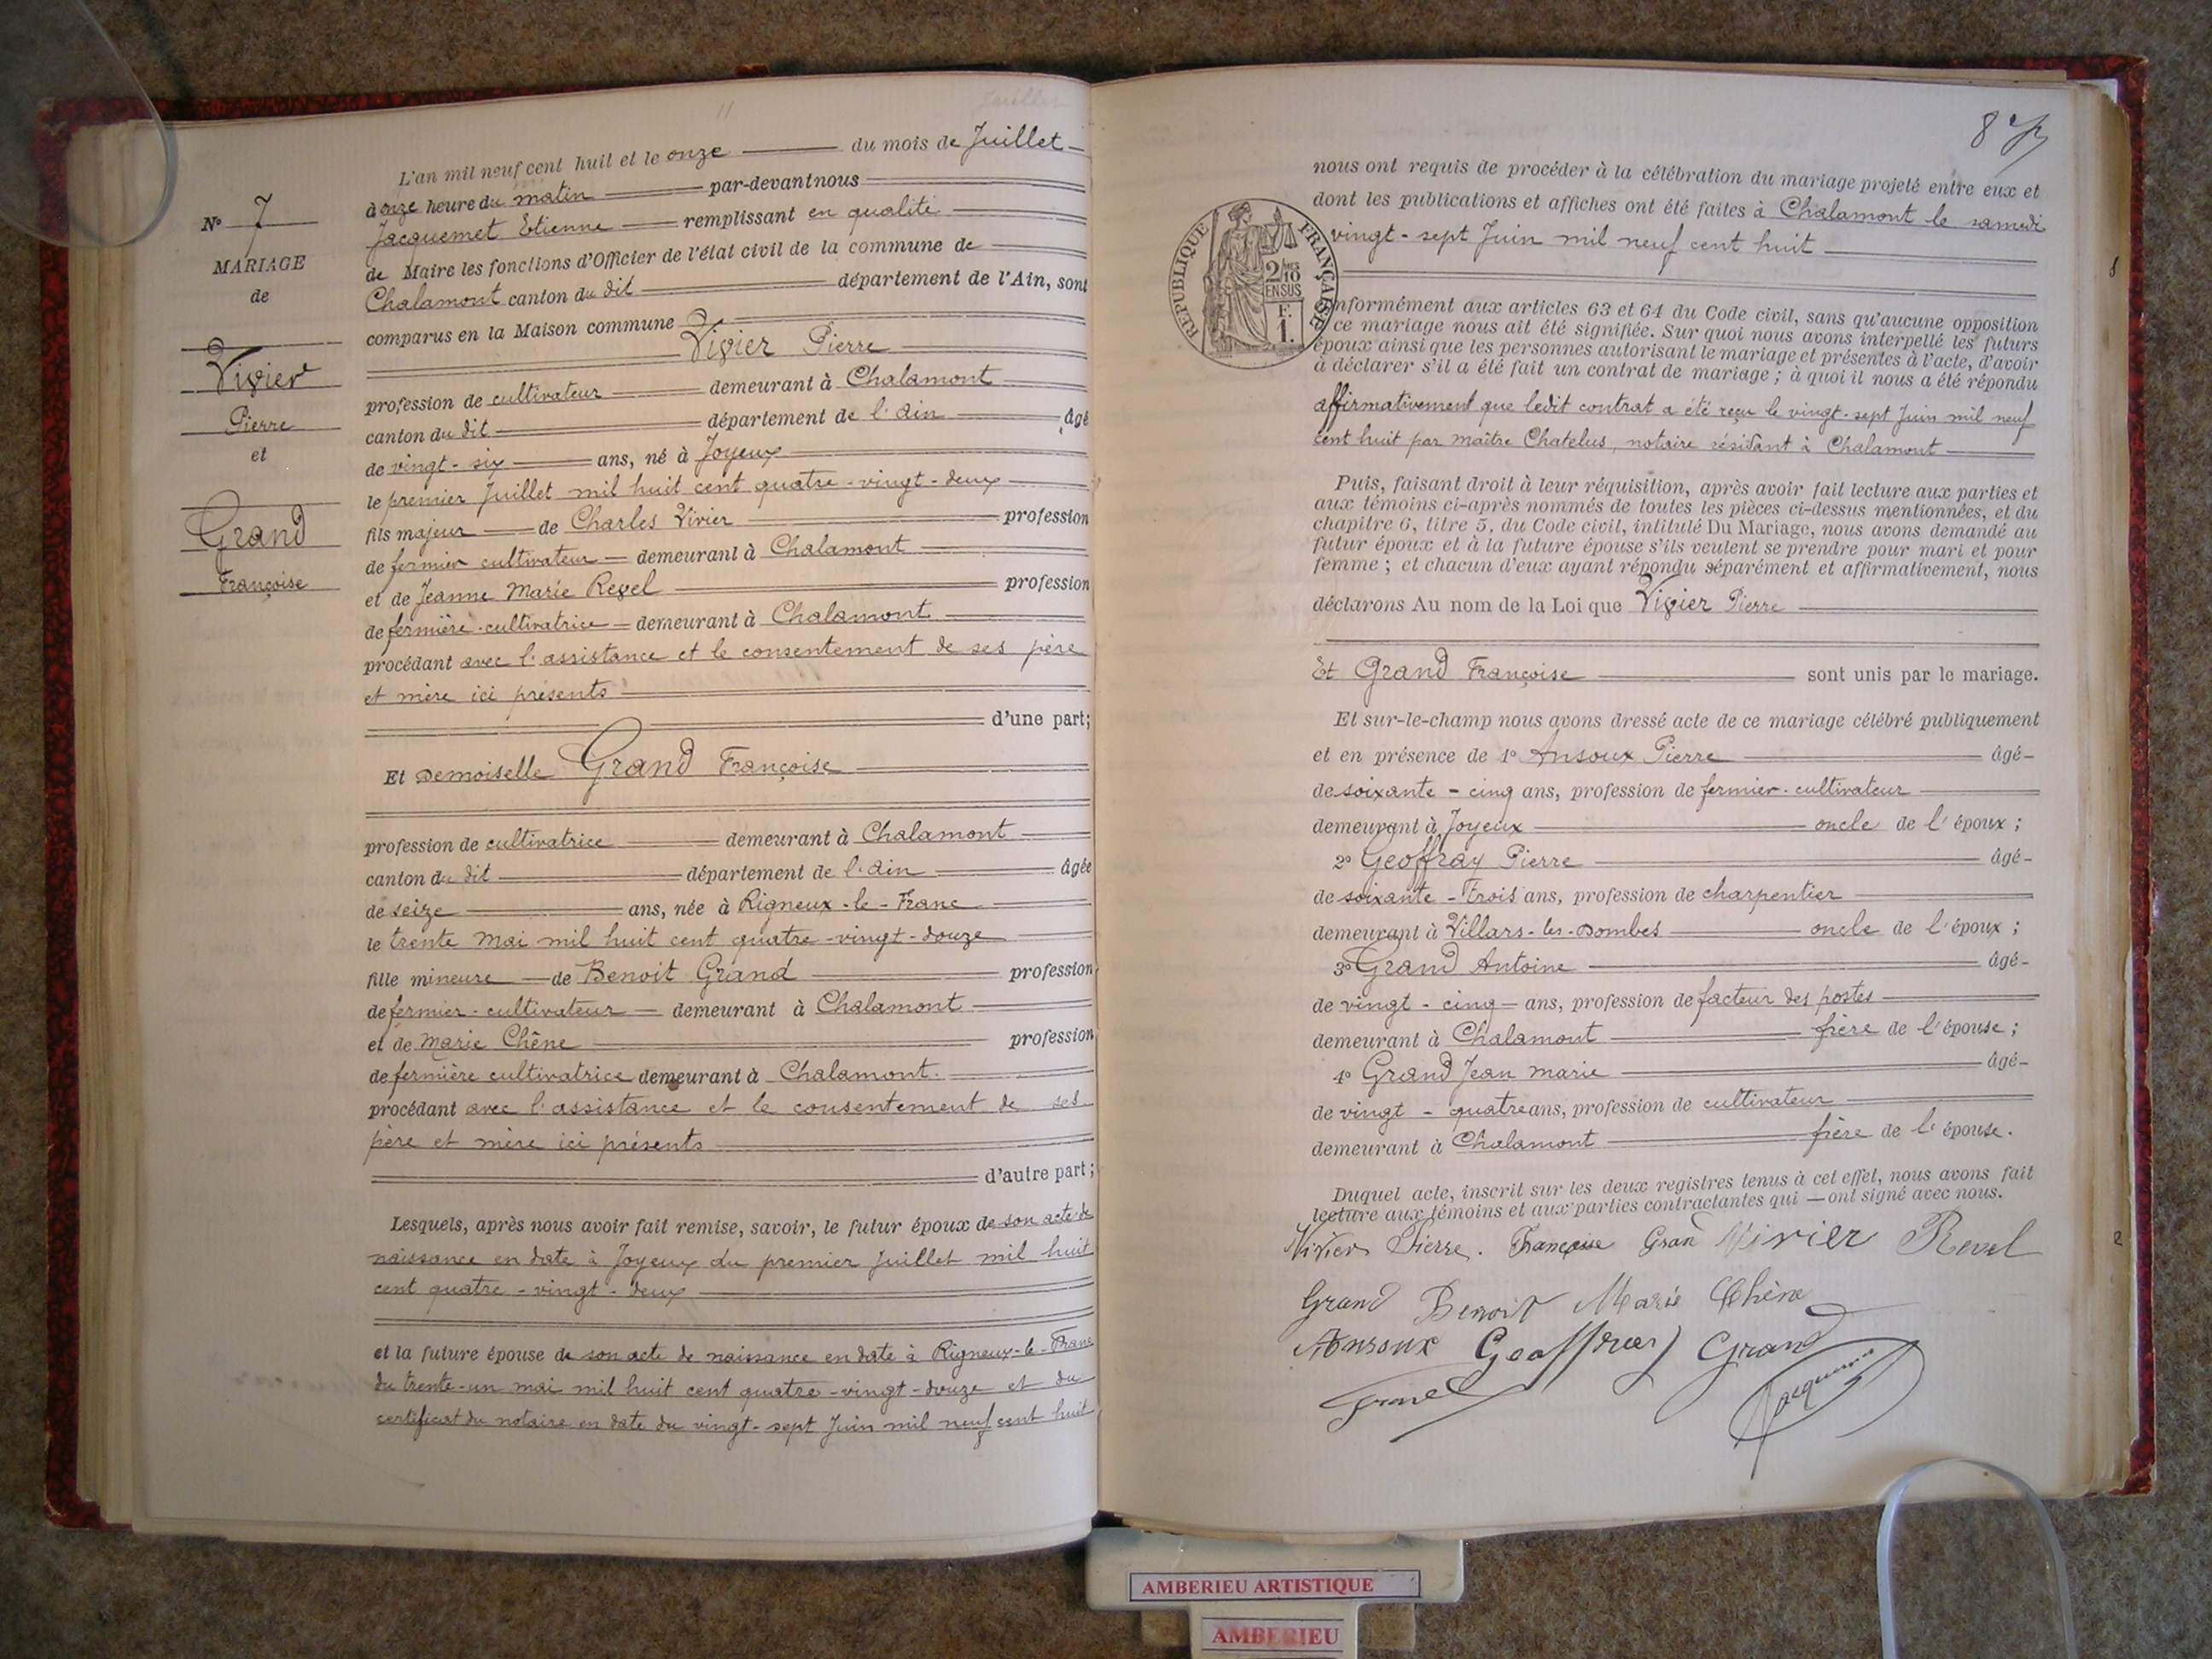 11
Juillet
L'an mil neuf cent huit et le onze du mois de Juillet
à onze heure du matin par-devant nous
Jacquemet Etienne remplissant en qualité
de Maire les fonctions d'Officier de l'état civil de la commune de
Chalamont canton du dit département de l'Ain, sont
comparus en la Maison commune
Vivier Pierre
profession de cultivateur demeurant à Chalamont
canton du dit département de l'Ain âgé
de vingt-six ans, né à Joyeux
le premier Juillet mil huit cent quatre-vingt-deux
fils majeur de Charles Vivier profession
de fermier cultivateur demeurant à Chalamont
et de Jeanne Marie Revel profession
de fermière-cultivatrice demeurant à Chalamont
procédant avec l'assistance et le consentement de ses père
et mère ici présents
d'une part;
Et Demoiselle Grand Françoise
profession de cultivatrice demeurant à Chalamont
canton du dit département de l'Ain âgée
de seize ans, née à Rigneux-le-Franc
le trente Mai mil huit cent quatre-vingt-douze
fille mineure de Benoit Grand profession
de fermier-cultivateur demeurant à Chalamont
et de Marie Chêne profession
de fermière cultivatrice demeurant à Chalamont.
procédant avec l'assistance et le consentement de ses
père et mère ici présents
d'autre part;
Lesquels, après nous avoir fait remise, savoir, le futur époux de son acte de
naissance en date à Joyeux du premier Juillet mil huit
cent quatre-vingt-deux
et la future épouse de son acte de naissance en date à Rigneux-le-Franc
du trente-un mai mil huit cent quatre-vingt-douze et du
certificat du notaire en date du vingt-sept Juin mil neuf cent huit
N° 7
MARIAGE
de
Vivier
Pierre
et
Grand
Françoise
87
nous ont requis de procéder à la célébration du mariage projeté entre eux et
dont les publications et affiches ont été faites à Chalamont le samedi
vingt-sept Juin mil neuf cent huit
REPUBLIQUE FRANÇAISE
2/10
EN SUS
F.
1.
nformément aux articles 63 et 64 du Code civil, sans qu'aucune opposition
ce mariage nous ait été signifiée. Sur quoi nous avons interpellé les futurs
époux ainsi que les personnes autorisant le mariage et présentes à l'acte, d'avoir
à déclarer s'il a été fait un contrat de mariage; à quoi il nous a été répondu
affirmativement que ledit contrat a été reçu le vingt-sept Juin mil neuf
cent huit par maître Chatelus, notaire résidant à Chalamont
Puis, faisant droit à leur réquisition, après avoir fait lecture aux parties et
aux témoins ci-après nommés de toutes les pièces ci-dessus mentionnées, et du
chapitre 6, titre 5, du Code civil, intitulé Du Mariage, nous avons demandé au
futur époux et à la future épouse s'ils veulent se prendre pour mari et pour
femme; et chacun d'eux ayant répondu séparément et affirmativement, nous
déclarons Au nom de la Loi que Vivier Pierre
Et Grand Françoise sont unis par le mariage.
Et sur-le-champ nous avons dressé acte de ce mariage célébré publiquement
et en présence de 1° Ansoux Pierre âgé
de soixante-cinq ans, profession de fermier-cultivateur
demeurant à Joyeux oncle de l'époux;
2° Geoffray Pierre âgé
de soixante-trois ans, profession de charpentier
demeurant à Villars-les-Dombes oncle de l'époux;
3° Grand Antoine âgé
de vingt-cinq ans, profession de facteur des postes
demeurant à Chalamont frère de l'épouse;
4° Grand Jean Marie âgé
de vingt-quatre ans, profession de cultivateur
demeurant à Chalamont frère de l'épouse.
Duquel acte, inscrit sur les deux registres tenus à cet effet, nous avons fait
lecture aux témoins et aux parties contractantes qui ont signé avec nous.
Vivier Pierre. Françoise Grand Vivier Revel
Grand Benoit Marie Chêne
Ansoux Geoffray Grand
Grand Jacquemet
AMBERIEU ARTISTIQUE
AMBERIEU